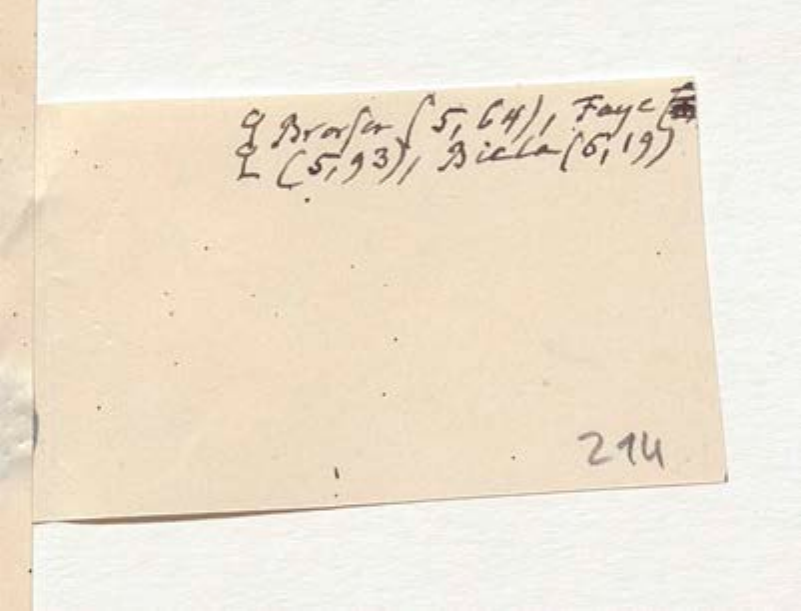 Brorsen (5,64), Faye
(5,93), Biela (6,19)
294